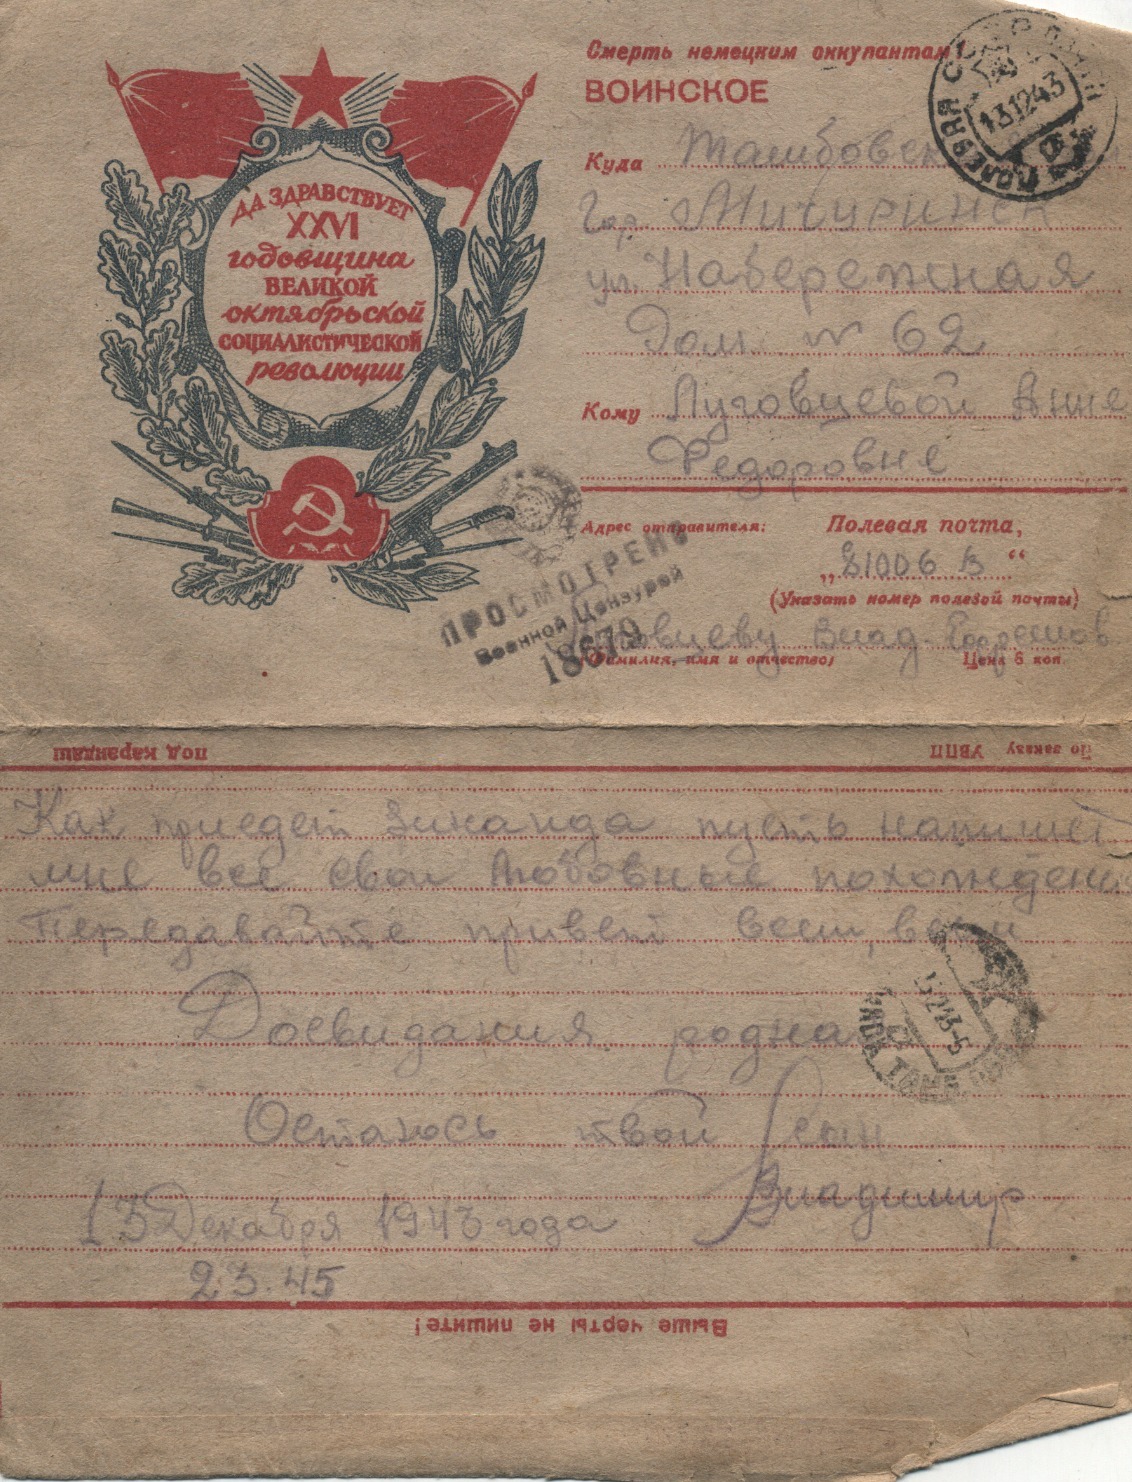 Смерть немецким оккупантам!
ВОИНСКОЕ
ДА ЗДРАВСТВУЕТ
XXVI
годовщина
ВЕЛИКОЙ
октябрьской
СОЦИАЛИСТИЧЕСКОЙ
революции
ПОЛЕВАЯ
13 12 43
Куда Тамбовск
Гор. Мичуринск
ул. Набережная
Дом № 62
Кому Луговцевой Анне
Федоровне
Адрес отправителя: Полевая почта,
„81006 В“
(Указать номер полевой почты)
Влад.
(Фамилия, имя и отчество) Цена 6 коп.
ПРОСМОТРЕНО
Военной Цензурой
18679
под карандаш
По заказу УВПП
Как приедет Зинаида пусть напишет
мне все свои любовные похождения
Передавайте привет всем, всем
Досвидания родная
ТАМБ.
Остаюсь твой сын
Владимир
13 Декабря 1943 года
23.45
Выше черты не пишите!